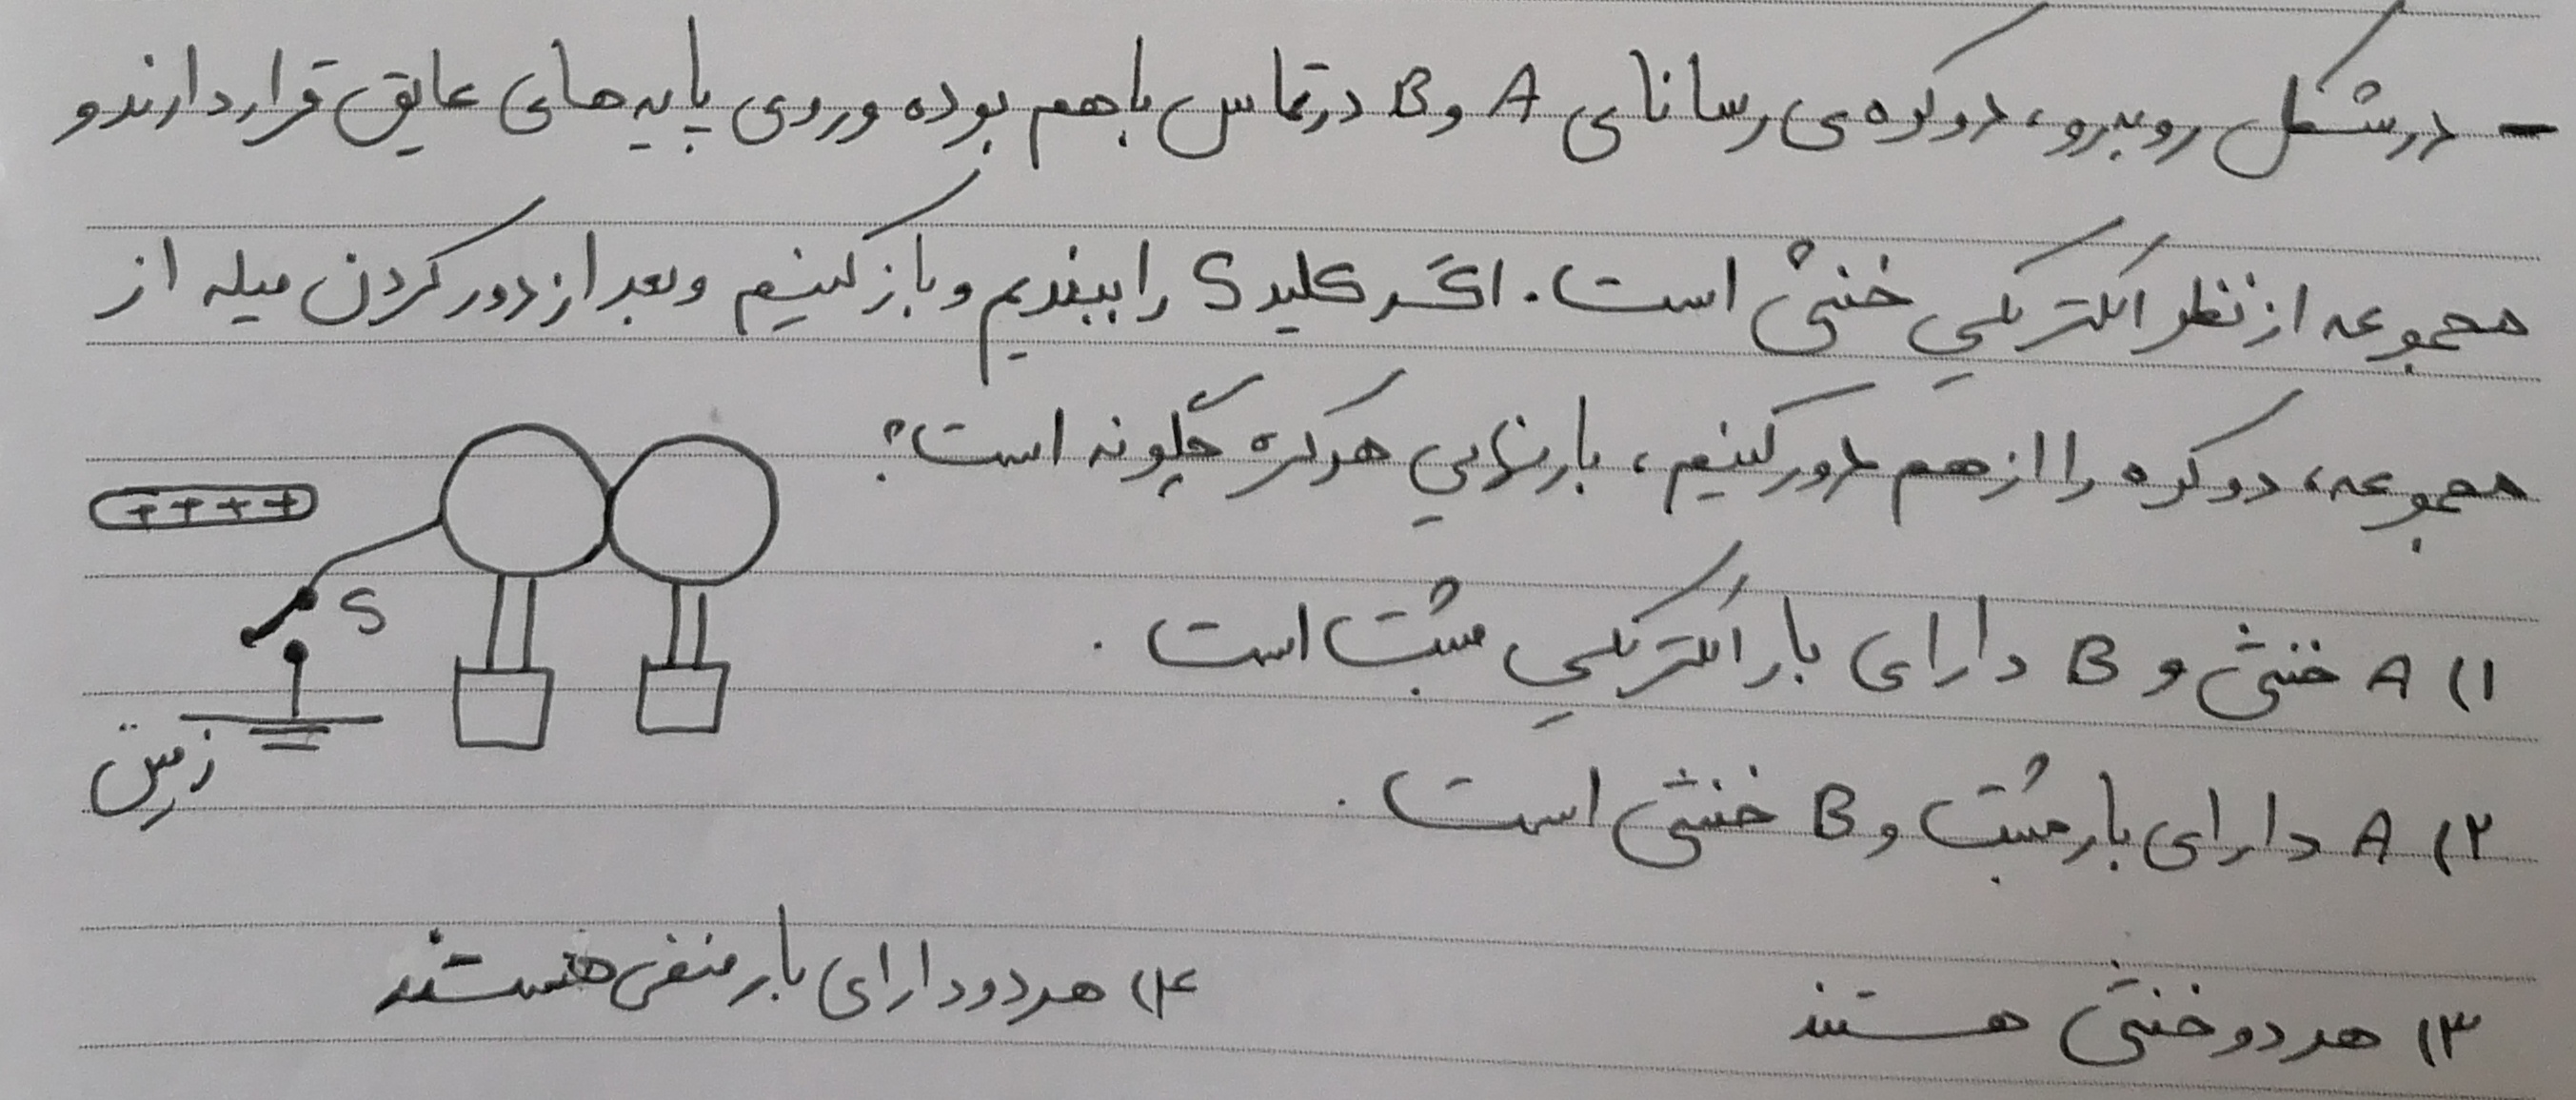 - در شکل روبرو، دو کره‌ی رسانای A و B در تماس با هم بوده و روی پایه‌های عایق قرار دارند و
مجموعه از نظر الکتریکی خنثی است. اگر کلید S را ببندیم و باز کنیم و بعد از دور کردن میله از
مجموعه، دو کره را از هم دور کنیم، بار نهایی هر کره چگونه است؟
++++
S
زمین
۱) A خنثی و B دارای بار الکتریکی مثبت است.
۲) A دارای بار مثبت و B خنثی است.
۳) هر دو خنثی هستند
۴) هر دو دارای بار منفی هستند